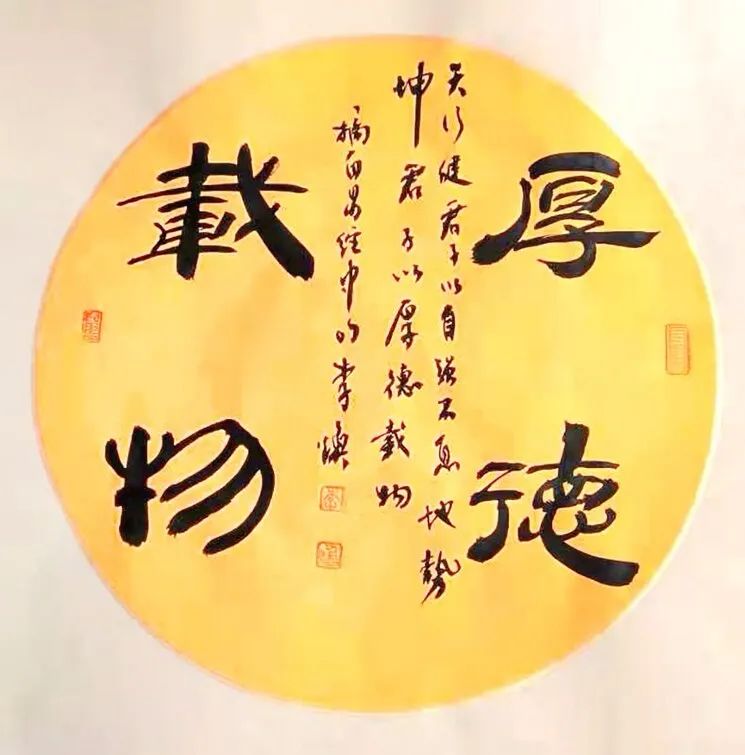 厚德
天行健君子以自强不息地勢
坤君子以厚德載物
摘自易经中的李焕
載物